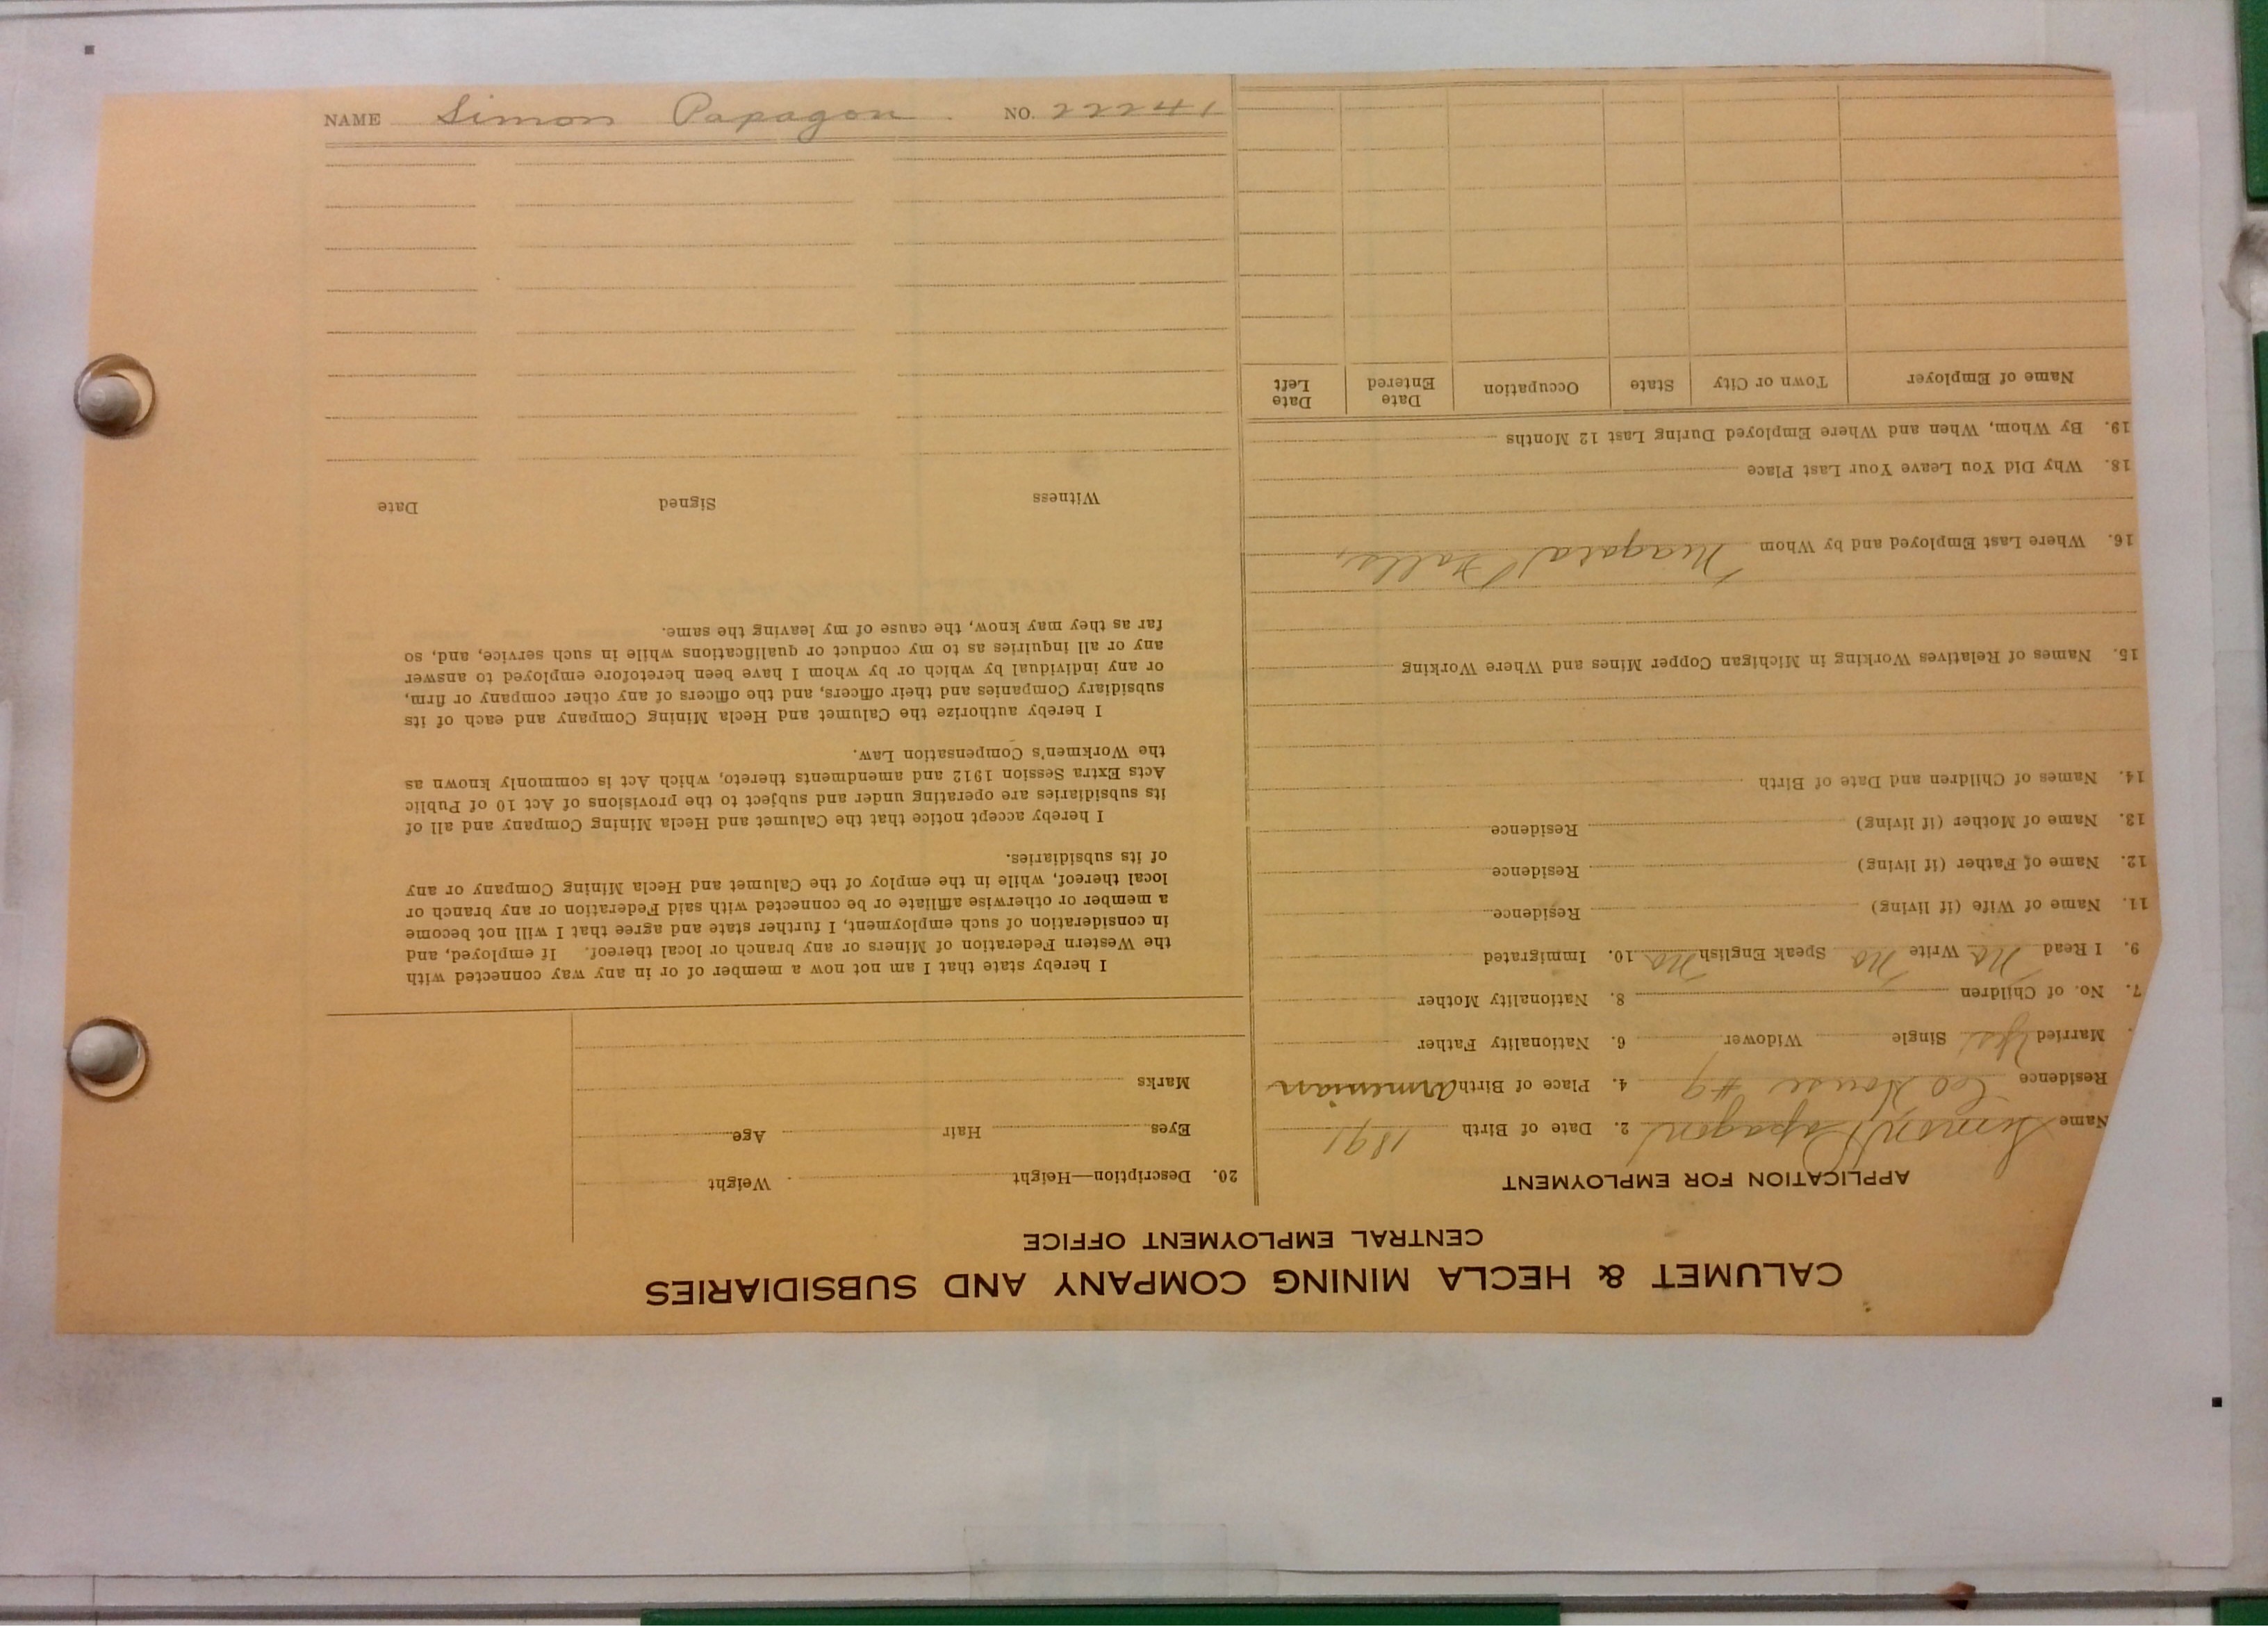 CALUMET & HECLA MINING COMPANY AND SUBSIDIARIES
CENTRAL EMPLOYMENT OFFICE
APPLICATION FOR EMPLOYMENT
Name Simon Papagon 2. Date of Birth 1891
Residence Co House #9 4. Place of Birth Armenian
Married Yes Single Widower 6. Nationality Father
7. No. of Children 8. Nationality Mother
9. I Read No Write No Speak English No 10. Immigrated
11. Name of Wife (if living) Residence
12. Name of Father (if living) Residence
13. Name of Mother (if living) Residence
14. Names of Children and Date of Birth
15. Names of Relatives Working in Michigan Copper Mines and Where Working
16. Where Last Employed and by Whom Niagara Falls,
18. Why Did You Leave Your Last Place
19. By Whom, When and Where Employed During Last 12 Months
Name of Employer Town or City State Occupation Date Entered Date Left
20. Description—Height Weight
Eyes Hair Age
Marks
I hereby state that I am not now a member of or in any way connected with
the Western Federation of Miners or any branch or local thereof. If employed, and
in consideration of such employment, I further state and agree that I will not become
a member or otherwise affiliate or be connected with said Federation or any branch or
local thereof, while in the employ of the Calumet and Hecla Mining Company or any
of its subsidiaries.
I hereby accept notice that the Calumet and Hecla Mining Company and all of
its subsidiaries are operating under and subject to the provisions of Act 10 of Public
Acts Extra Session 1912 and amendments thereto, which Act is commonly known as
the Workmen's Compensation Law.
I hereby authorize the Calumet and Hecla Mining Company and each of its
subsidiary Companies and their officers, and the officers of any other company or firm,
or any individual by which or by whom I have been heretofore employed to answer
any or all inquiries as to my conduct or qualifications while in such service, and, so
far as they may know, the cause of my leaving the same.
Witness Signed Date
NAME Simon Papagon NO. 22241